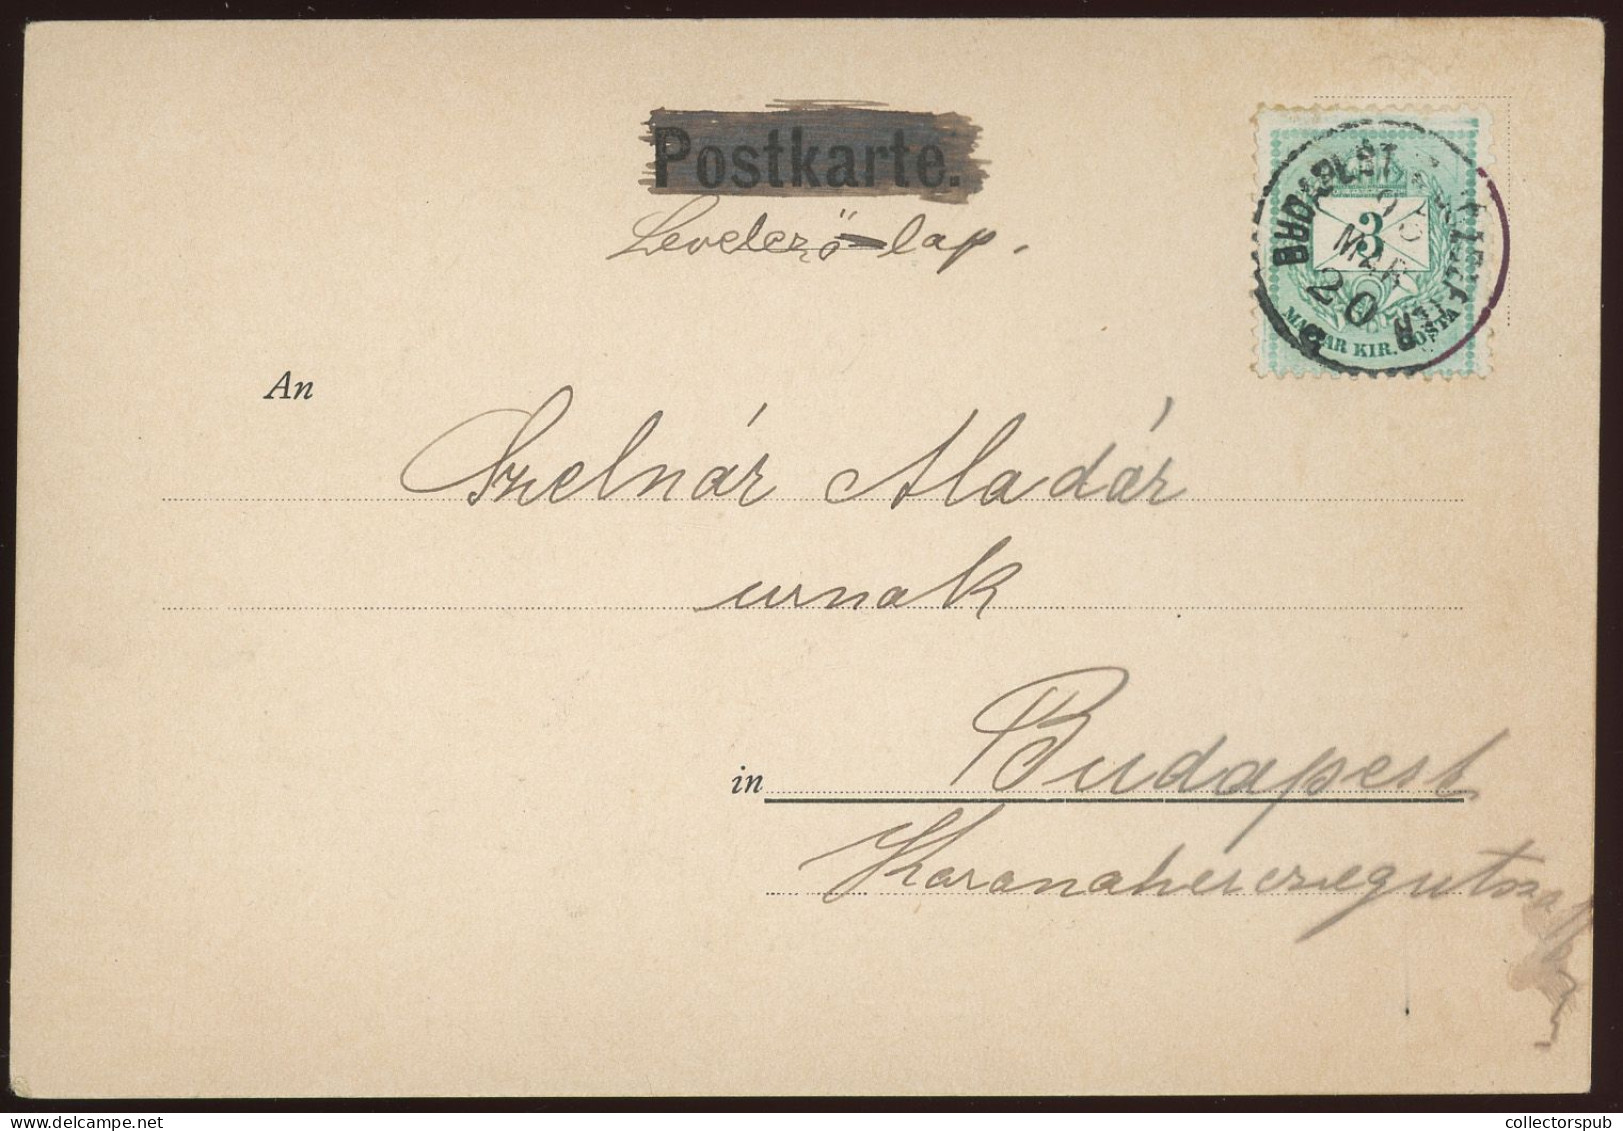 Postkarte.
Levelező-lap.
3
MAGYAR KIR. POSTA
BUDAPEST
MAR
20
An
Szelnár Aladár
urnak
in Budapest
Koronaherczegutsza
collectorspub